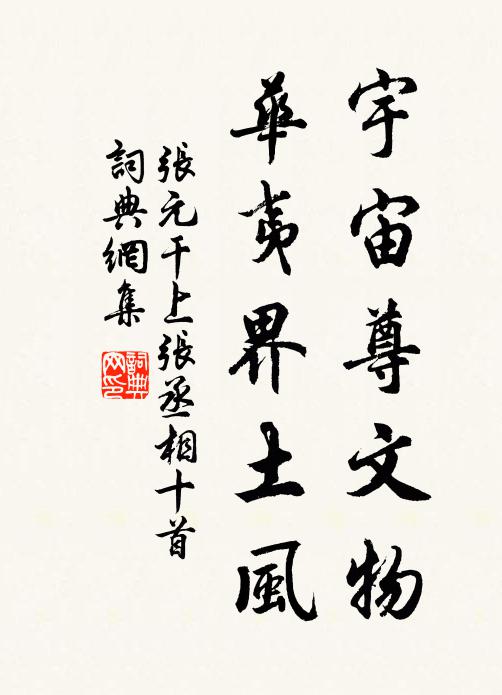 宇宙尊文物
華夷界土風
張元干上張丞相十首
詞典網集
詞典网印